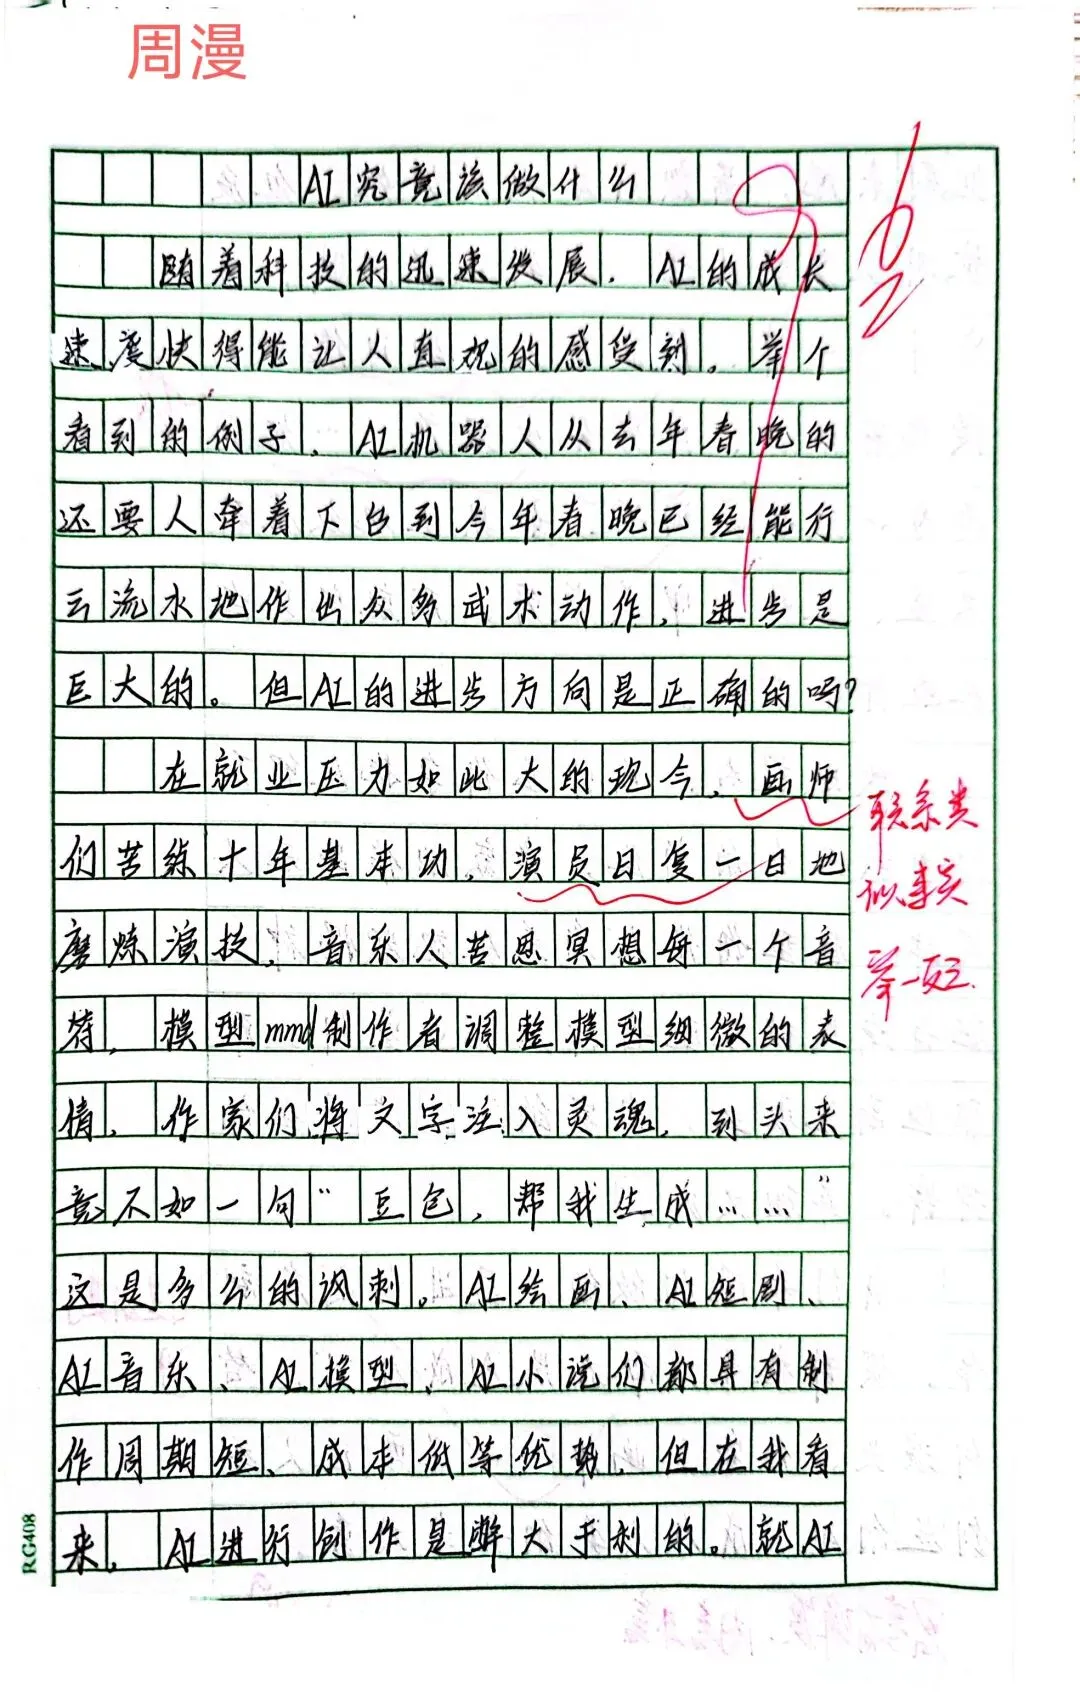 周漫
AI究竟该做什么
随着科技的迅速发展，AI的成长
速度快得能让人直观的感受到。举个
看到的例子，AI机器人从去年春晚的
还要人牵着下台到今年春晚已经能行
云流水地作出众多武术动作，进步是
巨大的。但AI的进步方向是正确的吗？
在就业压力如此大的现今，画师
们苦练十年基本功，演员日复一日地
磨炼演技，音乐人苦思冥想每一个音
符，模型mmd制作者调整模型细微的表
情，作家们将文字注入灵魂，到头来
竟不如一句“豆包，帮我生成……”
这是多么的讽刺。AI绘画、AI短剧、
AI音乐、AI模型、AI小说们都具有制
作周期短、成本低等优势，但在我看
来，AI进行创作是弊大于利的。就AI
62
联系类
似事实
举一反三.
RG408